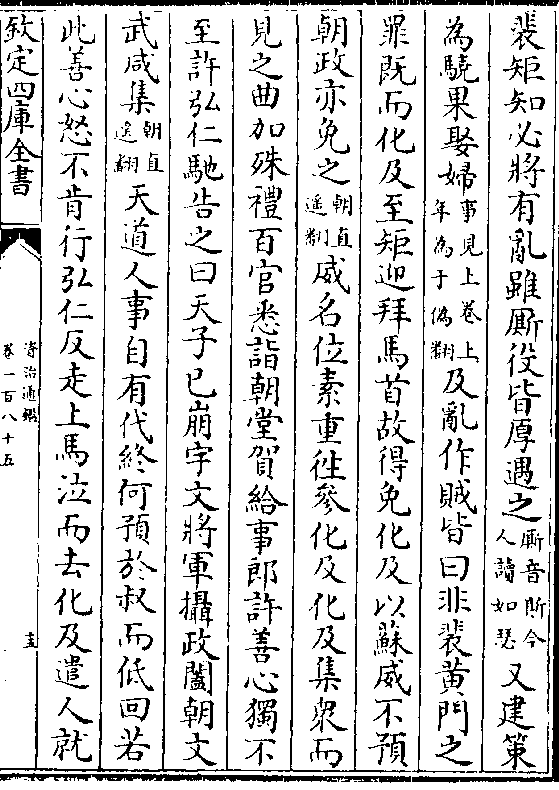 裴矩知必將有亂雖厮役皆厚遇之厮音斯今人讀如瑟又建策
為驍果娶婦事見上卷上年為于偽翻及亂作賊皆曰非裴黃門之
罪既而化及至矩迎拜馬首故得免化及以蘇威不預
朝政亦免之朝直遥翻威名位素重往參化及化及集衆而
見之曲加殊禮百官悉詣朝堂賀給事郎許善心獨不
至許弘仁馳告之曰天子已崩宇文將軍攝政闔朝文
武咸集朝直遥翻天道人事自有代終何預於叔而低回若
此善心怒不肯行弘仁反走上馬泣而去化及遣人就
欽定四庫全書
資治通鑑
卷一百八十五